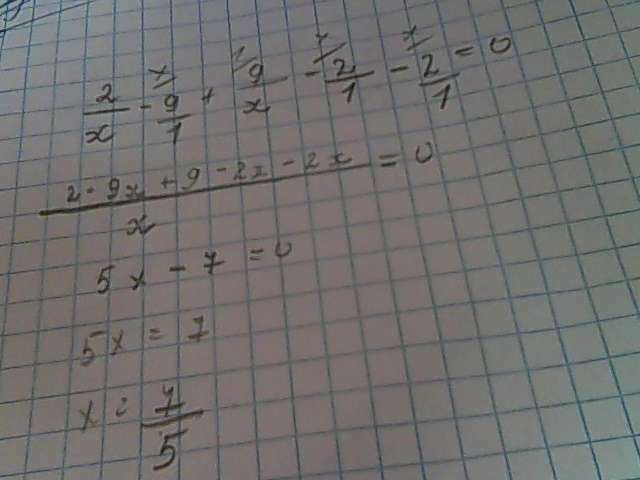 2/x - 9/1 + 9/x - 2/1 - 2/1 = 0
2 - 9x + 9 - 2x - 2x / x = 0
5x - 7 = 0
5x = 7
x = 7/5